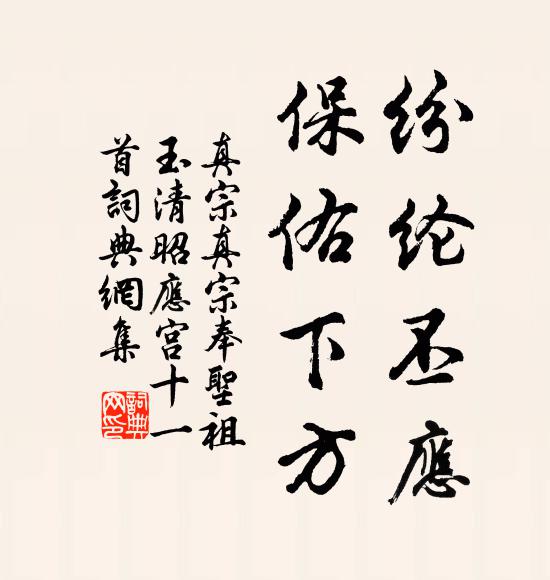 纷纶丕應
保佑下方
真宗真宗奉聖祖
玉清昭應宫十一
首詞典網集
詞典
网印